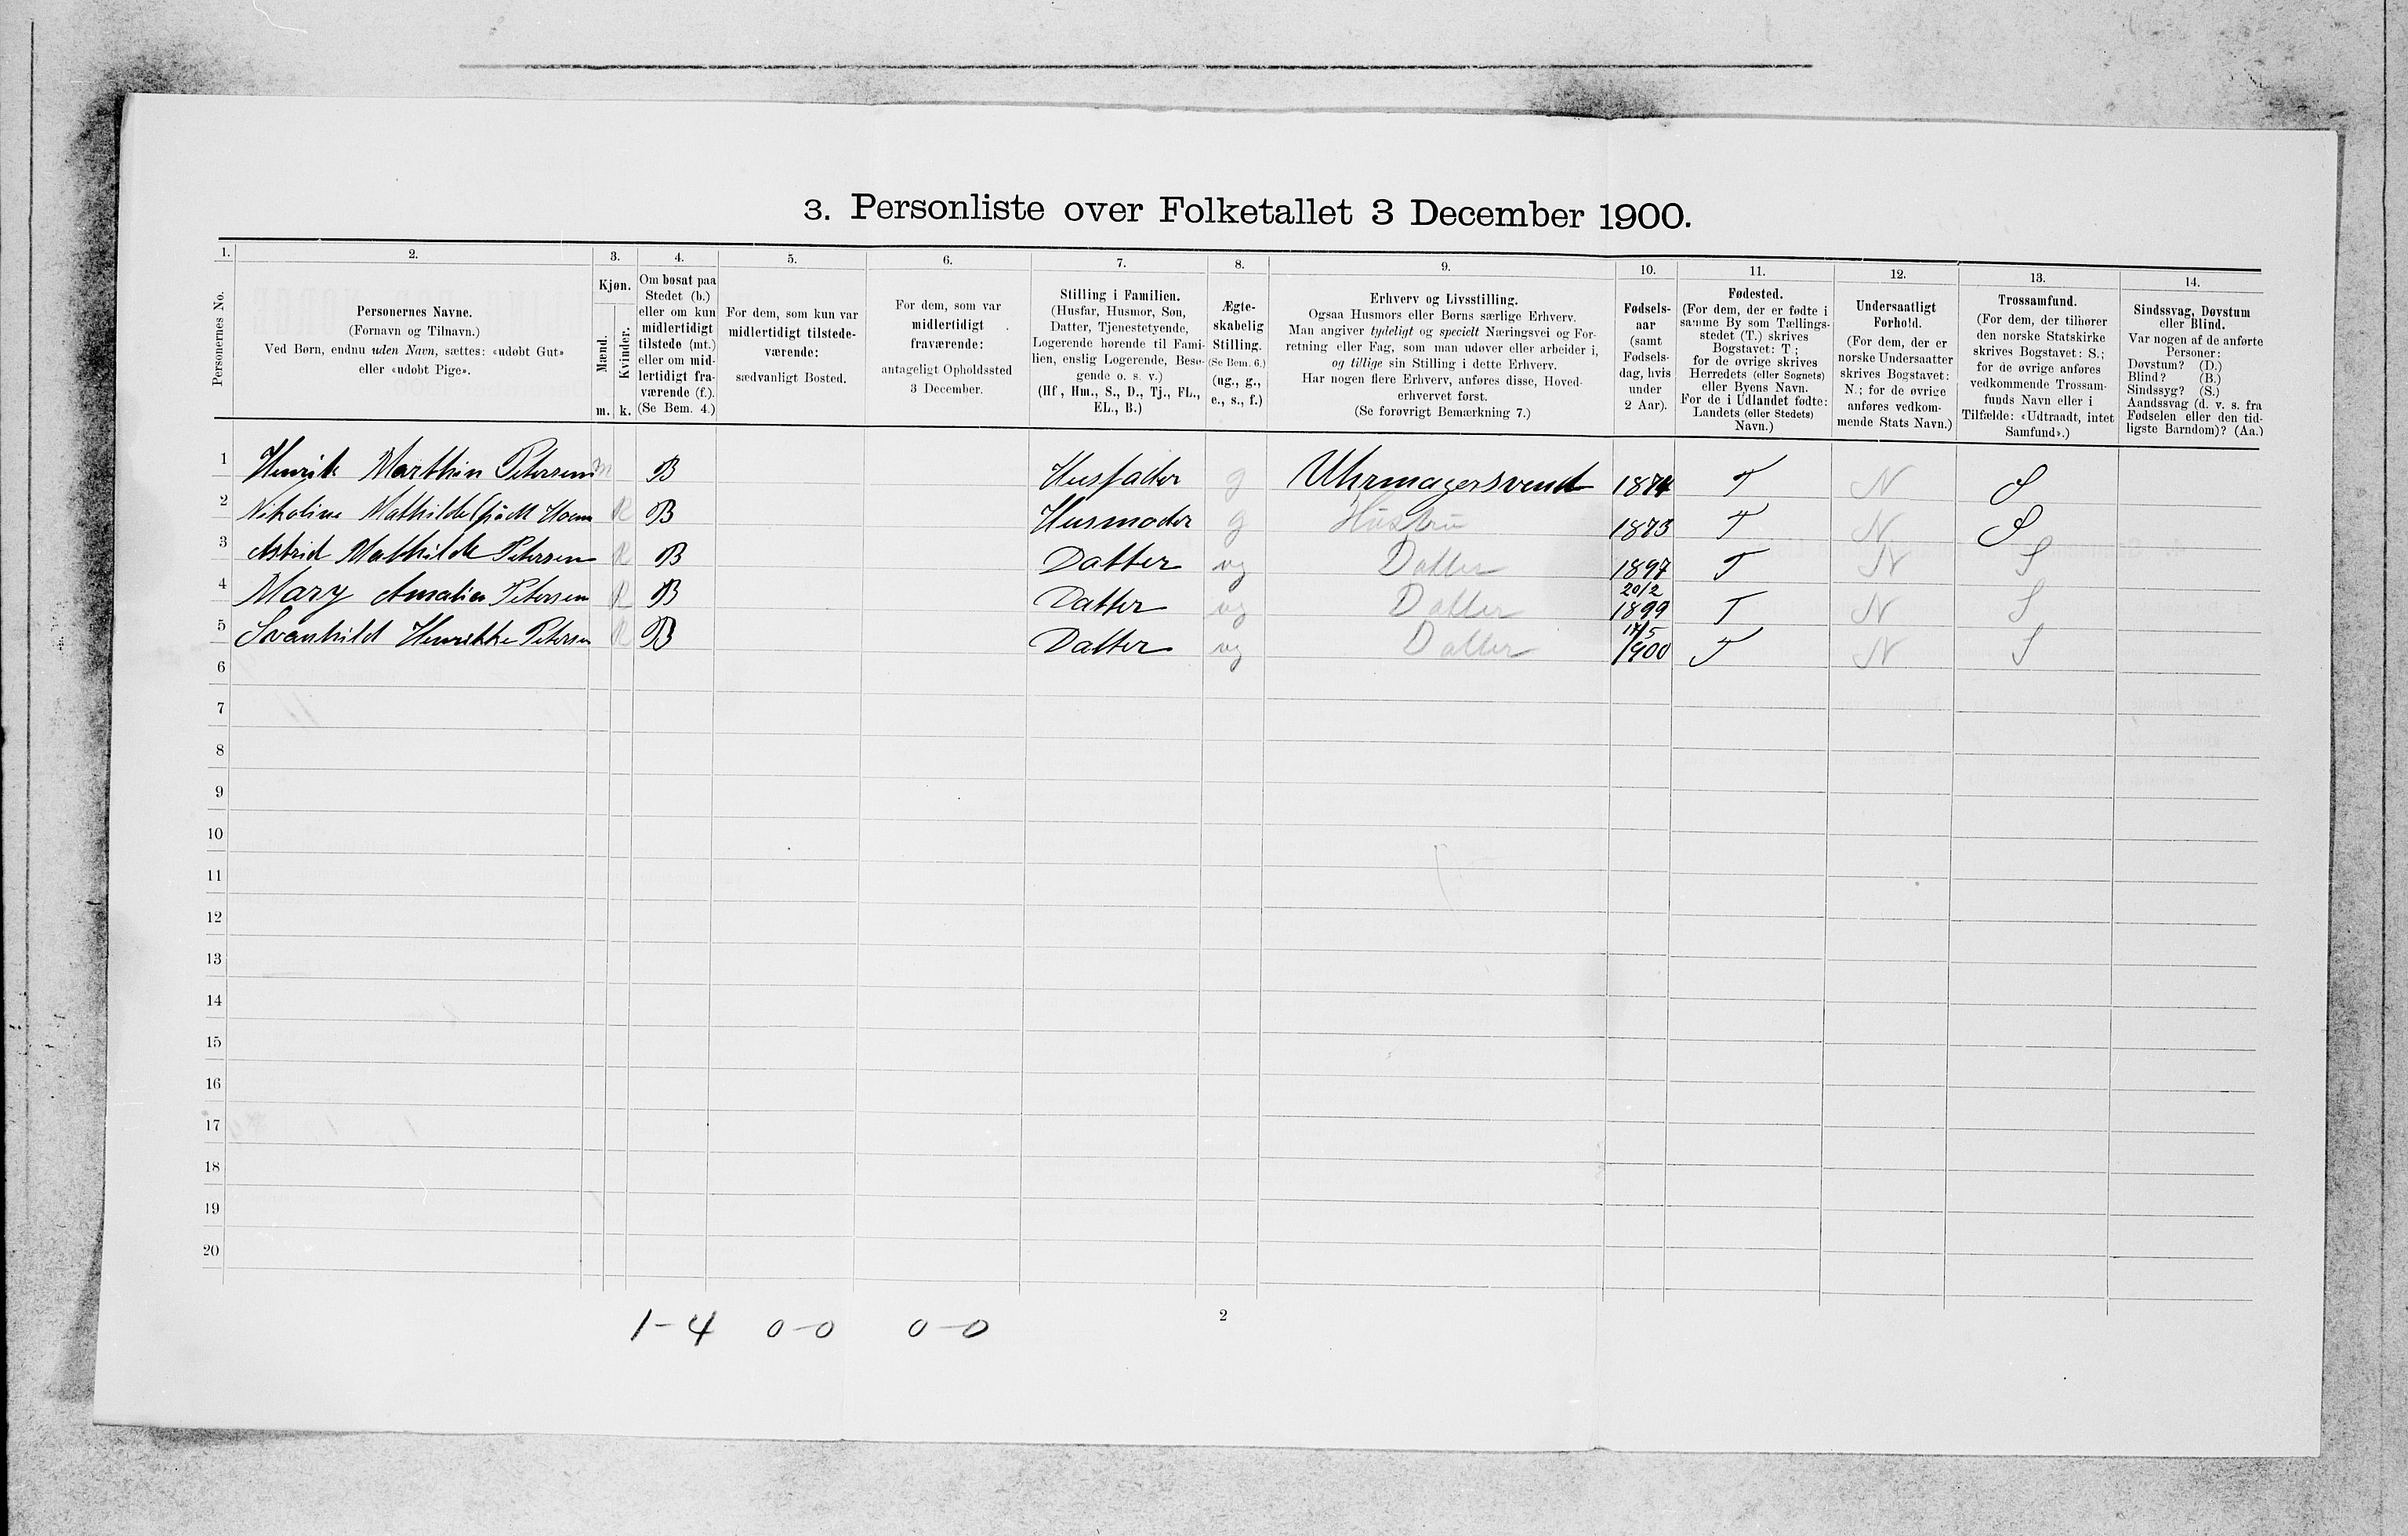 3. Personliste over Folketallet 3 December 1900.
1. 2. 3. 4. 5. 6. 7. 8. 9. 10. 11. 12. 13. 14.
Personernes No.
Personernes Navne.
(Fornavn og Tilnavn.)
Ved Børn, endnu uden Navn, sættes: «udøbt Gut»
eller «udøbt Pige».
Kjøn.
Mænd.
Kvinder.
m. k.
Om bosat paa
Stedet (b.)
eller om kun
midlertidigt
tilstede (mt.)
eller om mid-
lertidigt fra-
værende (f.).
(Se Bem. 4.)
For dem, som kun var
midlertidigt tilstede-
værende:
sædvanligt Bosted.
For dem, som var
midlertidigt
fraværende:
antageligt Opholdssted
3 December.
Stilling i Familien.
(Husfar, Husmor, Søn,
Datter, Tjenestetyende,
Logerende hørende til Fami-
lien, enslig Logerende, Besø-
gende o. s. v.)
(Hf., Hm., S., D., Tj., FL.,
EL., B.)
Ægte-
skabelig
Stilling.
(Se Bem. 6.)
(ug., g.,
e., s., f.)
Erhverv og Livsstilling.
Ogsaa Husmors eller Børns særlige Erhverv.
Man angiver tydeligt og specielt Næringsvei og For-
retning eller Fag, som man udøver eller arbeider i,
og tillige sin Stilling i dette Erhverv.
Har nogen flere Erhverv, anføres disse, Hoved-
erhvervet først.
(Se forøvrigt Bemærkning 7.)
Fødsels-
aar
(samt
Fødsels-
dag, hvis
under
2 Aar).
Fødested.
(For dem, der er fødte i
samme By som Tællings-
stedet (T.) skrives
Bogstavet: T ;
for de øvrige skrives
Herredets (eller Sognets)
eller Byens Navn.
For de i Udlandet fødte:
Landets (eller Stedets)
Navn.)
Undersaatligt
Forhold.
(For dem, der er
norske Undersaatter
skrives Bogstavet:
N.; for de øvrige
anføres vedkom-
mende Stats Navn.)
Trossamfund.
(For dem, der tilhører
den norske Statskirke
skrives Bogstavet: S.;
for de øvrige anføres
vedkommende Trossam-
funds Navn eller i
Tilfælde: «Udtraadt, intet
Samfund».)
Sindssvag, Døvstum
eller Blind.
Var nogen af de anførte
Personer:
Døvstum? (D.)
Blind? (B.)
Sindssyg? (S.)
Aandssvag (d. v. s. fra
Fødselen eller den tid-
ligste Barndom)? (Aa.)
1 Henrik Marthin Petersen m B Husfader g Uhrmagersvend 1874 T N S
2 Nikoline Mathilde (født K B Husmoder g Hustru 1873 T N S
3 Astrid Mathilde Petersen K B Datter ug Datter 1897 T N S
4 Mary Amalie Petersen K B Datter ug Datter 20/2 1899 T N S
5 Svanhild Henrikke Petersen K B Datter ug Datter 17/5 1900 T N S
6
7
8
9
10
11
12
13
14
15
16
17
18
19
20
1-4 0-0 0-0
2